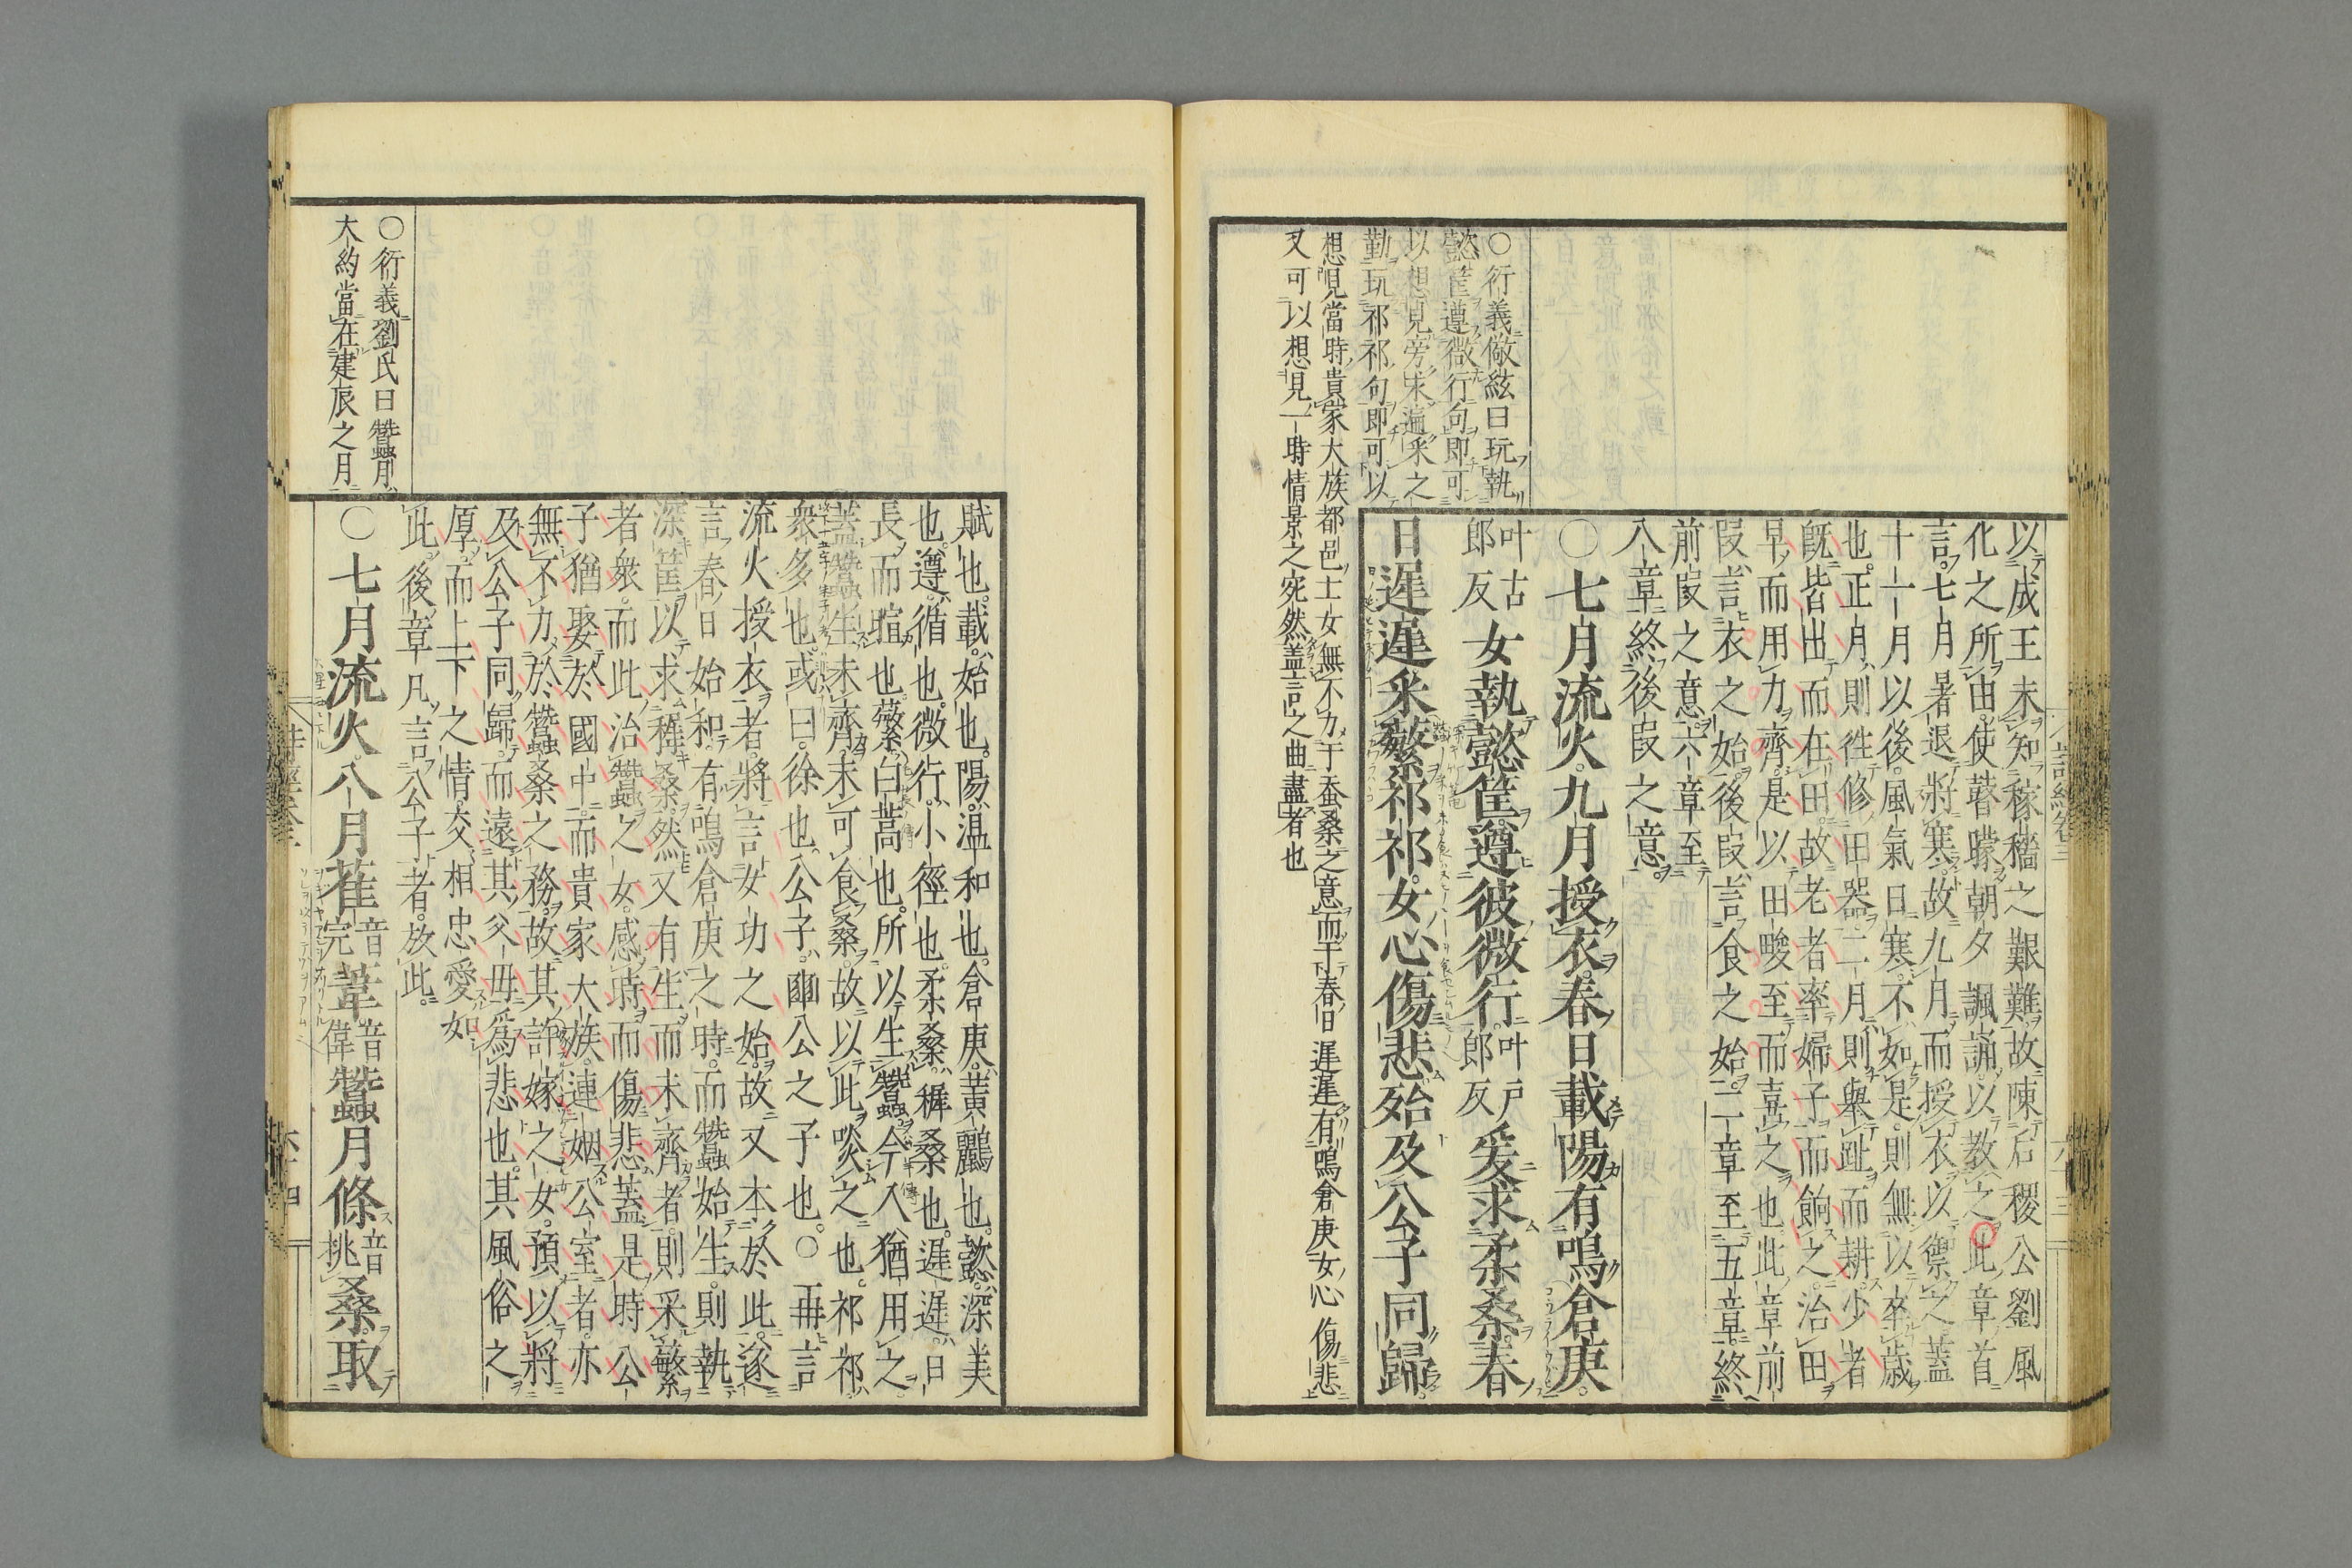 以成王未知稼穡之艱難故陳后稷公劉風
化之所由使瞽矇朝夕諷誦以教之此章首
言七月暑退將寒故九月而授衣以禦之蓋
十一月以後風氣日寒不如是則無以卒歲
也正月則徃修田器二月則擧趾而耕少者
旣皆出而在田故老者率婦子而餉之治田
早而用力齊是以田畯至而喜之也此章前
叚言衣之始後叚言食之始二章至五章終
前叚之意六章至
八章終後叚之意
〇七月流火九月授衣春日載陽有鳴倉庚
叶古郎反女執懿筐遵彼微行叶戶郎反爰求柔桑春
日遲遲采蘩祁祁女心傷悲殆及公子同歸
〇衍義儆絃曰玩執
懿筐遵微行句即可
以想見旁求遍采之
勤玩祁祁句即可以
想見當時貴家大族都邑士女無不力于蚕桑之意而于春日遲遲有鳴倉庚女心傷悲
又可以想見一時情景之宛然蓋言之曲盡者也
賦也載始也陽温和也倉庚黃鸝也懿深美
也遵循也微行小徑也柔桑穉桑也遲遲日
長而暄也蘩白蒿也所以生蠶今人猶用之
蓋蠶生未齊未可食桑故以此啖之也祁祁
衆多也或曰徐也公子豳公之子也〇再言
流火授衣者將言女功之始故又本於此遂
言春日始和有鳴倉庚之時而蠶始生則執
深筐以求穉桑然又有生而未齊者則采蘩
者衆而此治蠶之女感時而傷悲蓋是時公
子猶娶於國中而貴家大族連姻公室者亦
無不力於蠶桑之務故其許嫁之女預以將
及公子同歸而遠其父母爲悲也其風俗之
厚而上下之情交相忠愛如
此後章凡言公子者放此
〇衍義劉氏曰蠶月
大約當在建辰之月
〇七月流火八月萑音完葦音偉蠶月條音挑桑取